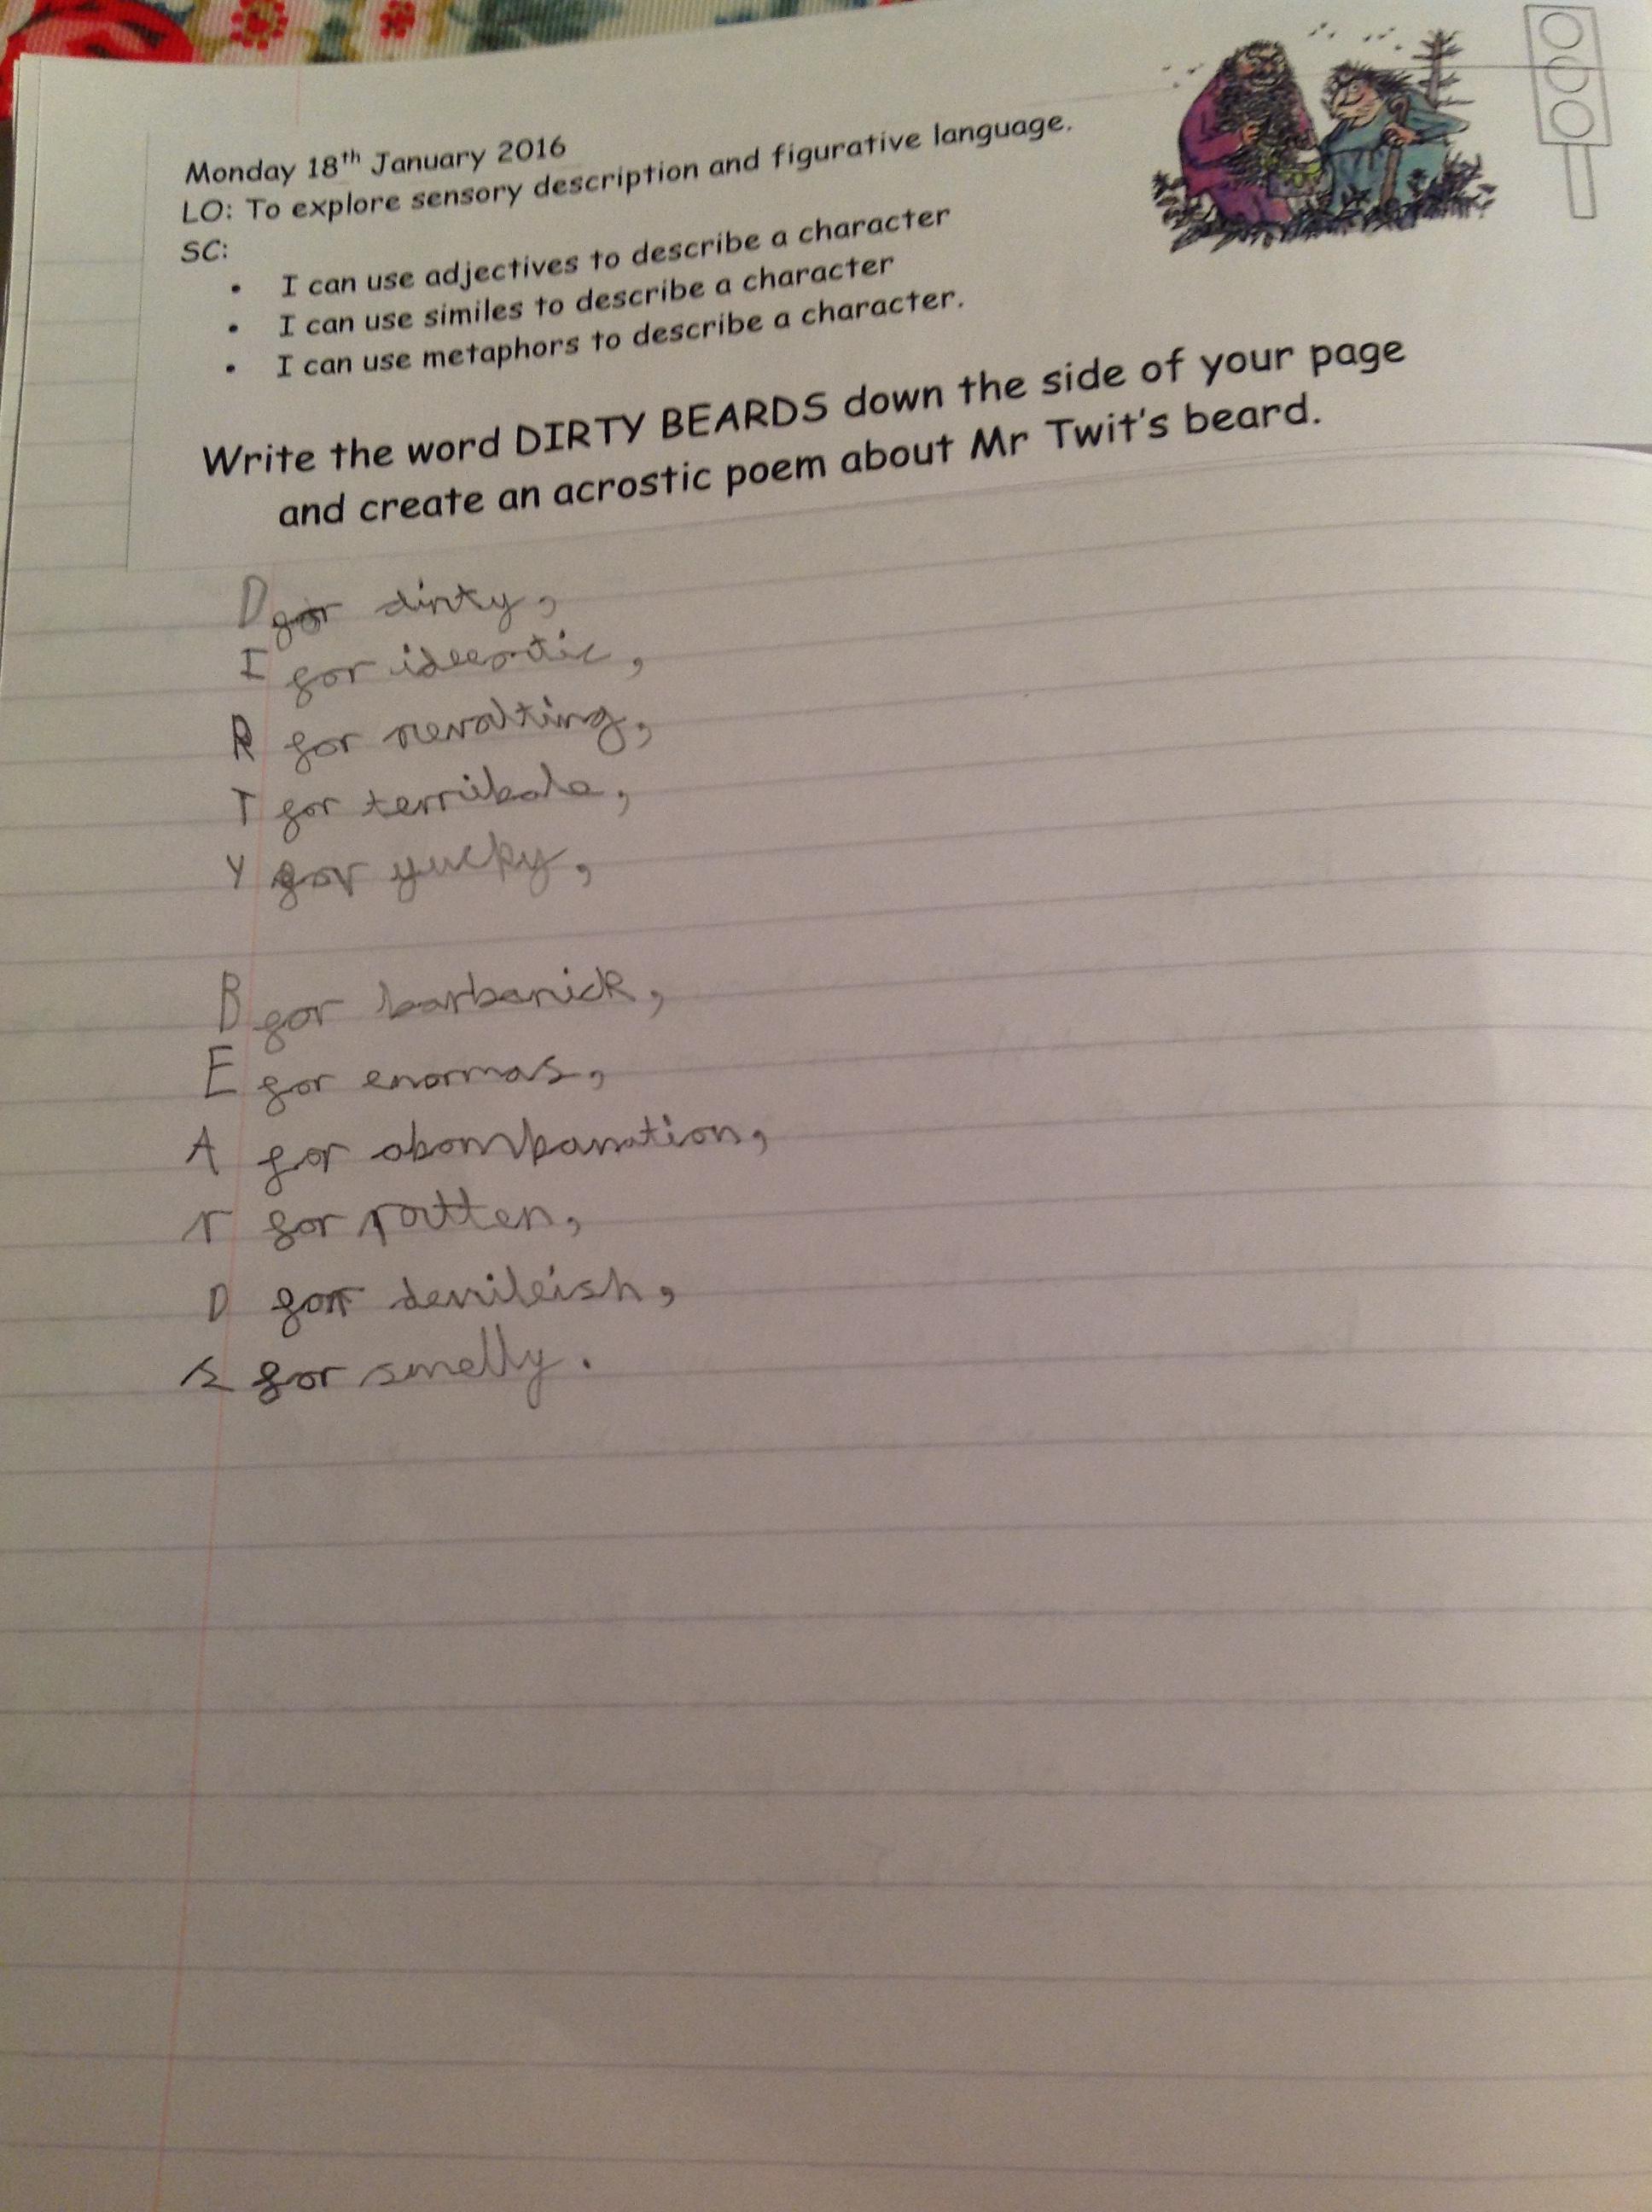 Monday 18th January 2016
LO: To explore sensory description and figurative language.
SC:
• I can use adjectives to describe a character
• I can use similes to describe a character
• I can use metaphors to describe a character.
Write the word DIRTY BEARDS down the side of your page
and create an acrostic poem about Mr Twit's beard.
D for dirty,
I for ideeotic,
R for revolting,
T for terribale,
Y for yucky,
B for barbarick,
E for enormas,
A for abombanation,
r for rotten,
D for devileish,
S for smelly.